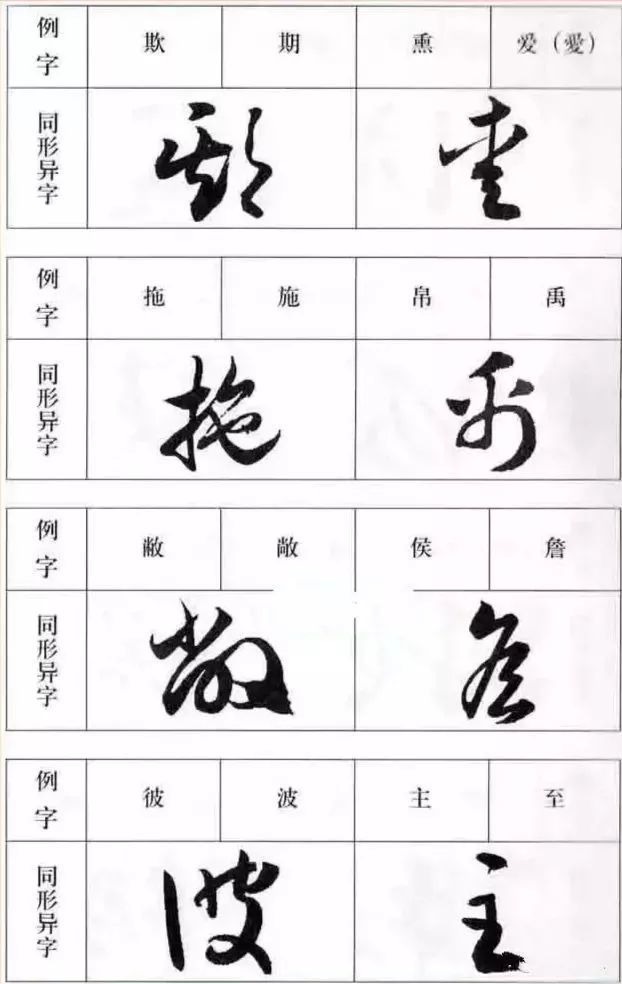 例字 欺 期 熏 爱(愛)
同形异字
例字 拖 施 帛 禹
同形异字
例字 敝 敞 侯 詹
同形异字
例字 彼 波 主 至
同形异字